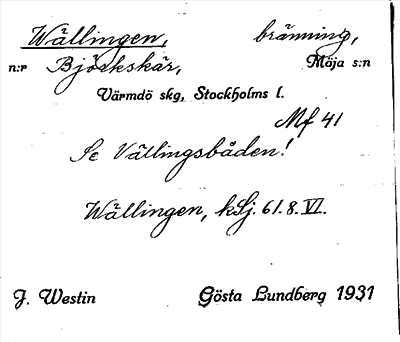 Wällingen, bränning,
n:r Björkskär, Möja s:n
Värmdö skg, Stockholms l.
Mf 41
Se Vällingsbåden!
Wällingen, kSj. 61.8.VI.
J. Westin Gösta Lundberg 1931